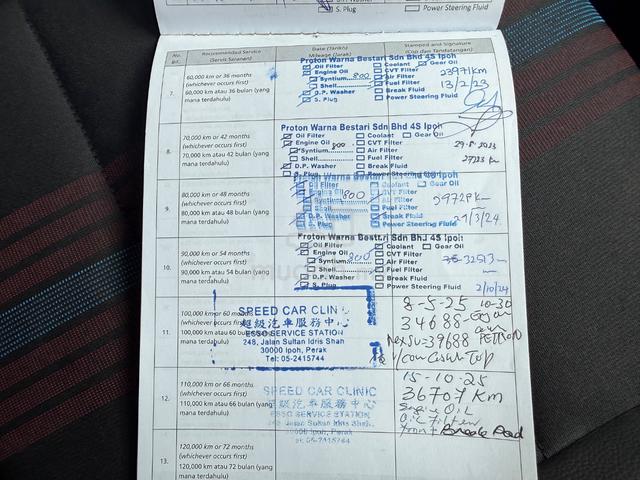 S. Plug
Power Steering Fluid
No.
Recommended Service
(Servis Saranan)
Date (Tarikh)
Mileage (Jarak)
Stamped and Signature
(Cop dan Tandatangan)
7.
60,000 km or 36 months
(whichever occurs first)
60,000 km atau 36 bulan (yang
mana terdahulu)
Proton Warna Bestari Sdn Bhd 4S Ipoh
Oil Filter Coolant Gear Oil
Engine Oil CVT Filter
Syntium 800 Air Filter
Shell Fuel Filter
D.P. Washer Break Fluid
S. Plug Power Steering Fluid
23971km
13/2/23
8.
70,000 km or 42 months
(whichever occurs first)
70,000 km atau 42 bulan (yang
mana terdahulu)
Proton Warna Bestari Sdn Bhd 4S Ipoh
Oil Filter Coolant Gear Oil
Engine Oil CVT Filter
Syntium 800 Air Filter
Shell Fuel Filter
D.P. Washer Break Fluid
S. Plug Power Steering Fluid
29.8.2023
9.
80,000 km or 48 months
(whichever occurs first)
80,000 km atau 48 bulan (yang
mana terdahulu)
Proton Warna Bestari Sdn Bhd 4S Ipoh
Oil Filter Coolant Gear Oil
Engine Oil CVT Filter
Syntium 800 Air Filter
Shell Fuel Filter
D.P. Washer Break Fluid
S. Plug Power Steering Fluid
21/3/24
10.
90,000 km or 54 months
(whichever occurs first)
90,000 km atau 54 bulan (yang
mana terdahulu)
Proton Warna Bestari Sdn Bhd 4S Ipoh
Oil Filter Coolant Gear Oil
Engine Oil CVT Filter
Syntium 800 Air Filter
Shell Fuel Filter
D.P. Washer Break Fluid
S. Plug Power Steering Fluid
32513
2/10/24
11.
100,000 km or 60 months
(whichever occurs first)
100,000 km atau 60 bulan
mana terdahulu)
SPEED CAR CLINIC
超級汽車服務中心
ESSO SERVICE STATION
248, Jalan Sultan Idris Shah
30000 Ipoh, Perak
Tel: 05-2415744
8-5-25 10-30
34688
39688
12.
110,000 km or 66 months
(whichever occurs first)
110,000 km atau 66 bulan (yang
mana terdahulu)
SPEED CAR CLINIC
超級汽車服務中心
ESSO SERVICE STATION
248 Jalan Sultan Idris Shah,
30000 Ipoh, Perak
Tel: 05-2415744
15-10-25
36707 Km
Engine OIL
OIL Filter
Front Break Pad
13.
120,000 km or 72 months
(whichever occurs first)
120,000 km atau 72 bulan (yang
mana terdahulu)